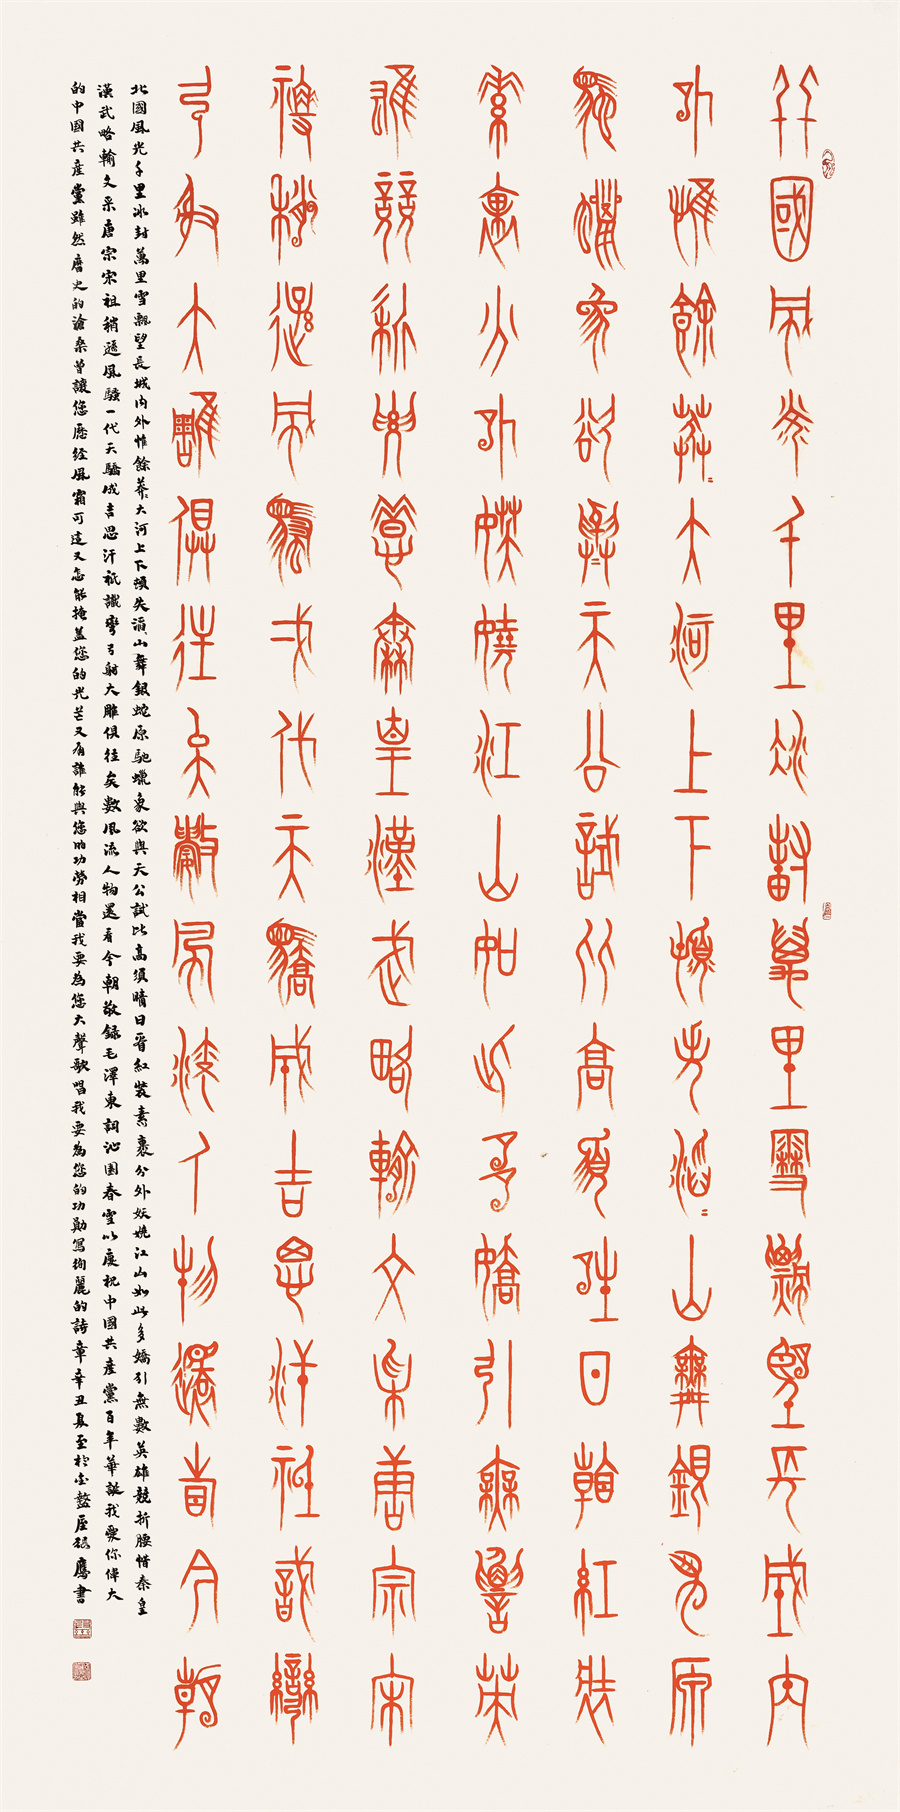 北國風光千里冰封萬里雪飄望長城内
外惟餘莽〻大河上下頓失滔〻山舞銀蛇原
馳蠟象欲與天公試比高須晴日看紅裝
素裹分外妖嬈江山如此多嬌引無數英
雄競折腰惜秦皇漢武略輸文采唐宗宋
祖稍遜風騷一代天驕成吉思汗祇識彎
弓射大雕俱往矣數風流人物還看今朝
北國風光千里冰封萬里雪飄望長城内外惟餘莽〻大河上下頓失滔〻山舞銀蛇原馳蠟象欲與天公試比高須晴日看紅裝素裹分外妖嬈江山如此多嬌引無數英雄競折腰惜秦皇
漢武略輸文采唐宗宋祖稍遜風騷一代天驕成吉思汗祇識彎弓射大雕俱往矣數風流人物還看今朝敬録毛澤東詞沁園春雪以慶祝中國共產黨百年華誕我要你偉大
的中國共產黨雖然歷史的滄桑曾讓您歷經風霜可這又怎能掩蓋您的光芒又有誰能與您的功勞相當我要為您大聲歌唱我要為您的功勛寫絢麗的詩章辛丑夏至於屋鷹書